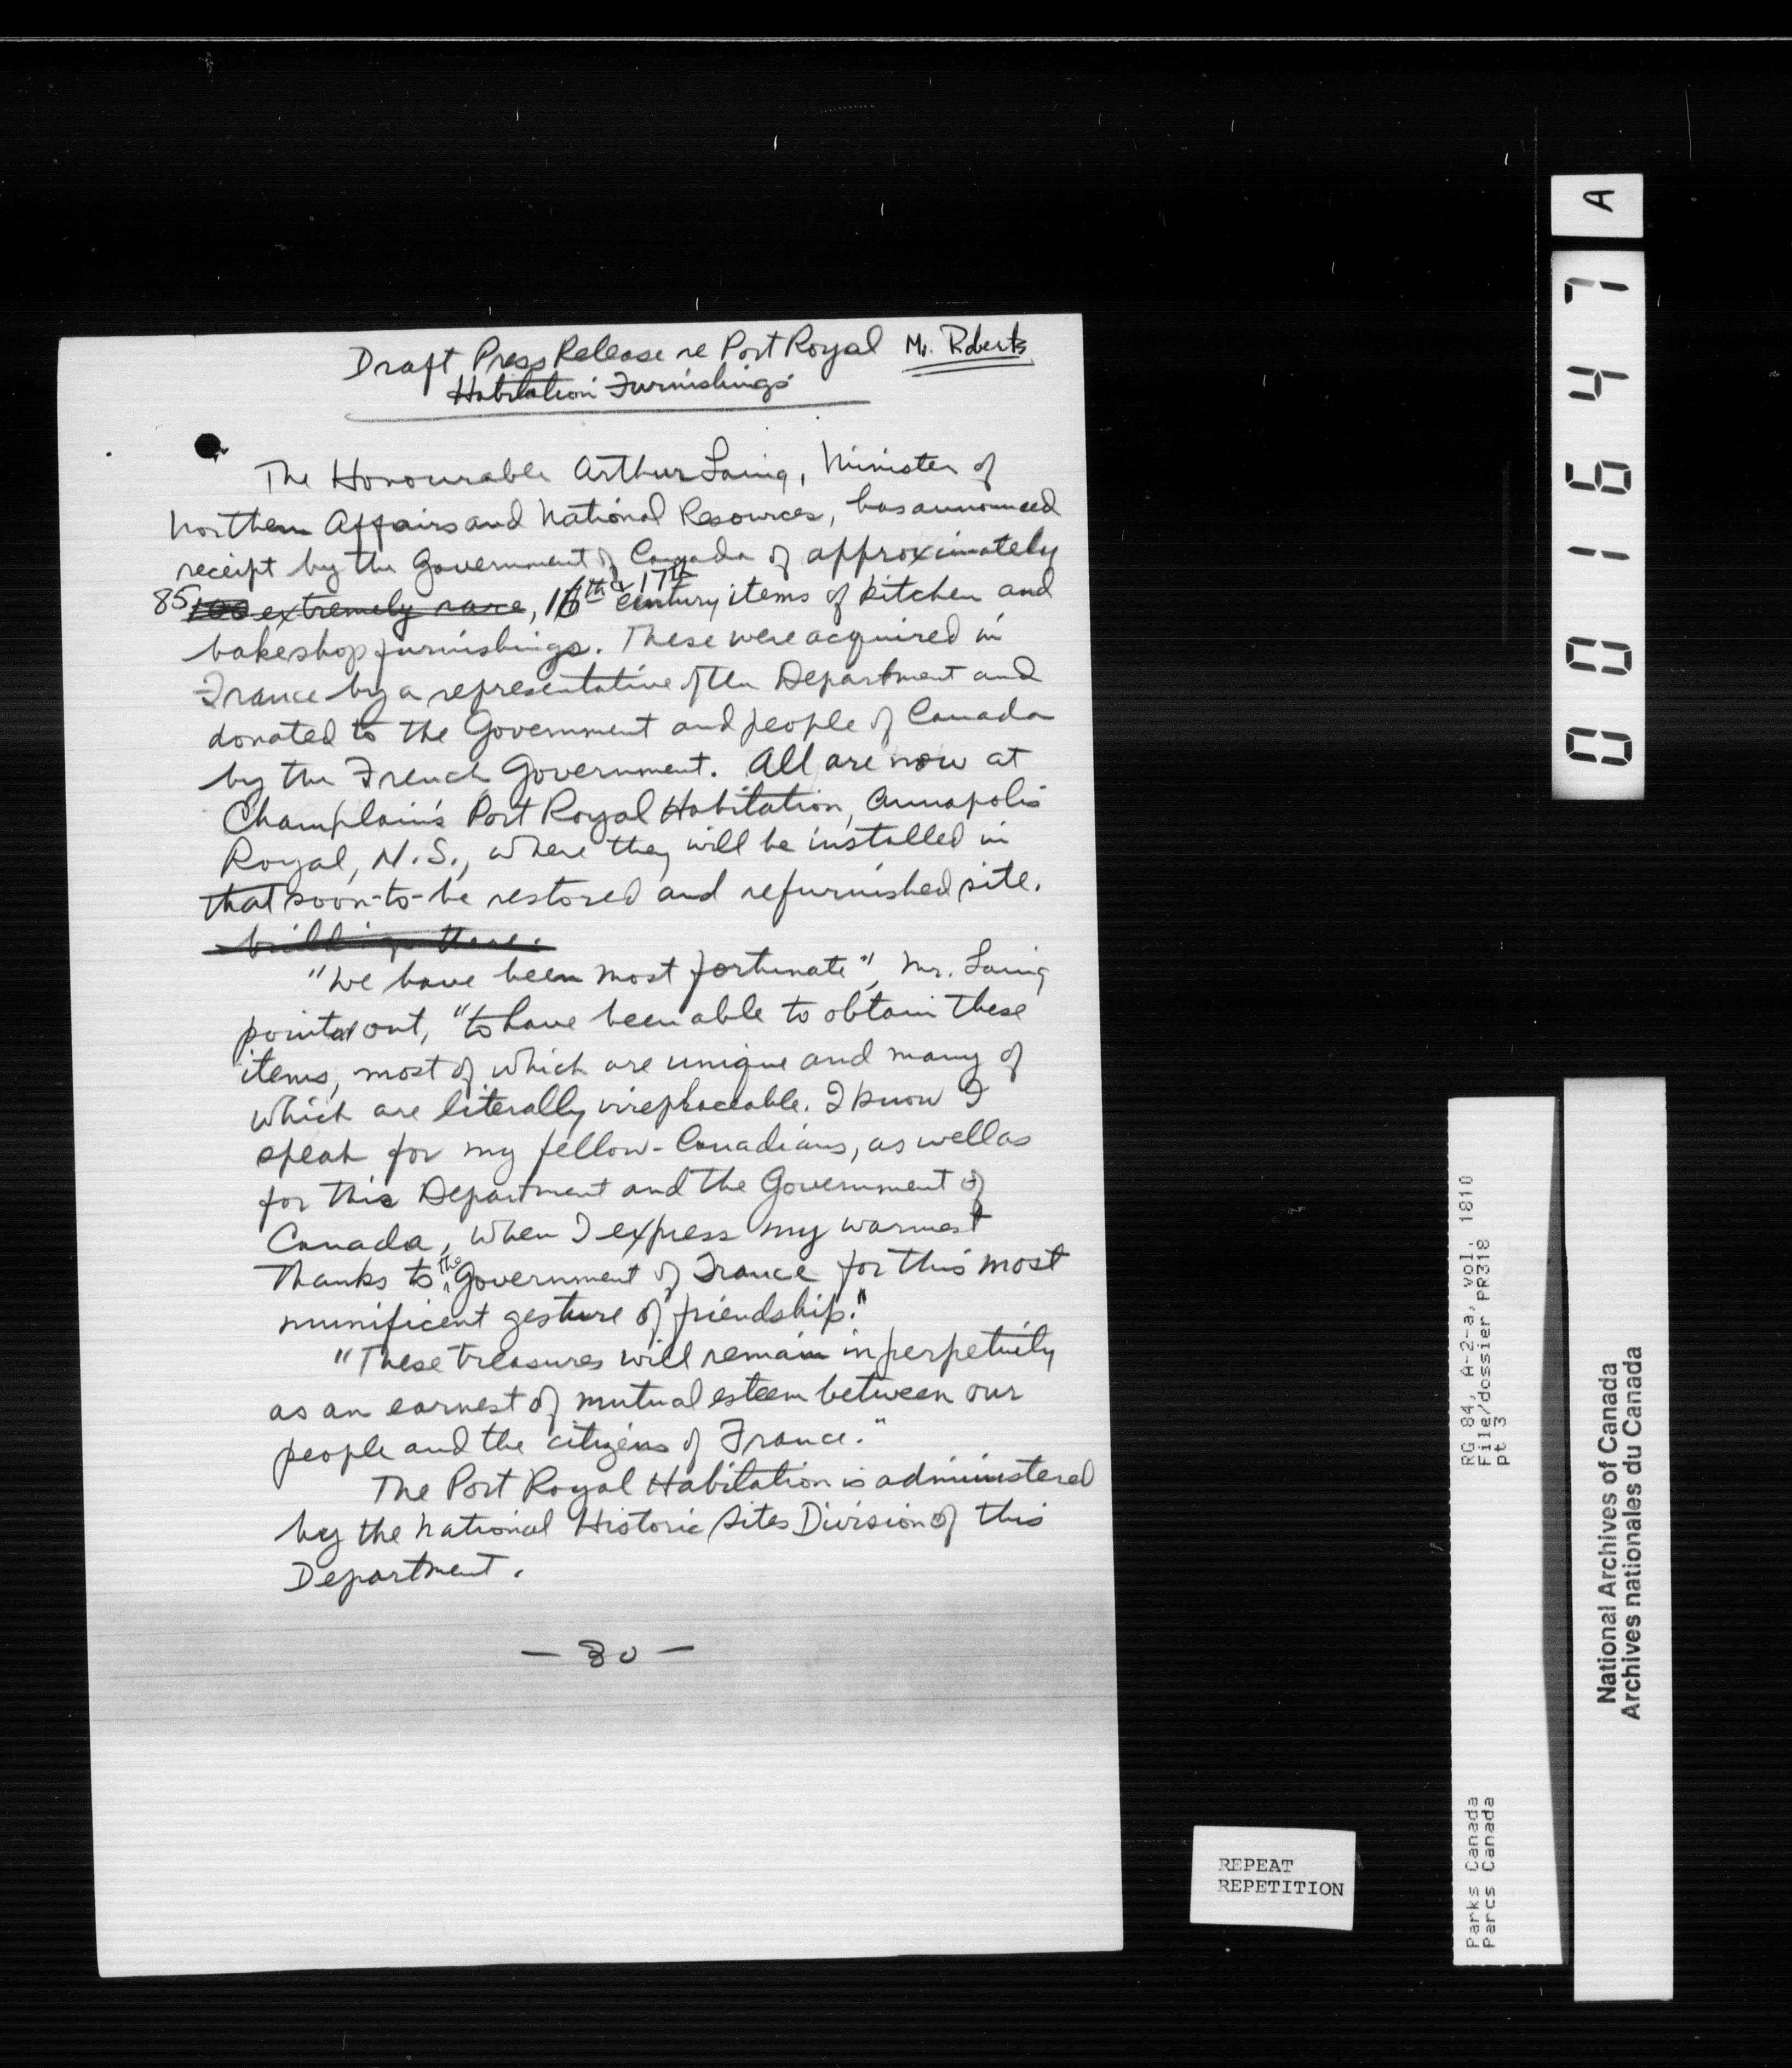 Draft Press Release re Port Royal Mr. Roberts
Habitation Furnishings
The Honourable Arthur Laing, Minister of
Northern Affairs and National Resources, has announced
receipt by the Government of Canada of approximately
85 100 extremely rare, 16th & 17th century items of kitchen and
bakeshop furnishings. These were acquired in
France by a representative of the Department and
donated to the Government and people of Canada
by the French Government. All are now at
Champlain's Port Royal Habitation, Annapolis
Royal, N.S., where they will be installed in
that soon-to-be restored and refurnished site.
buildings there.
"We have been most fortunate", Mr. Laing
pointed out, "to have been able to obtain these
items, most of which are unique and many of
which are literally irreplaceable. I know I
speak for my fellow-Canadians, as well as
for this Department and the Government of
Canada, when I express my warmest
thanks to the Government of France for this most
munificent gesture of friendship."
"These treasures will remain in perpetuity
as an earnest of mutual esteem between our
people and the citizens of France."
The Port Royal Habitation is administered
by the National Historic Sites Division of this
Department.
— 30 —
A
001647
RG 84, A-2-a, vol. 1810
File/dossier PR318
pt 3
Parks Canada
Parcs Canada
National Archives of Canada
Archives nationales du Canada
REPEAT
REPETITION